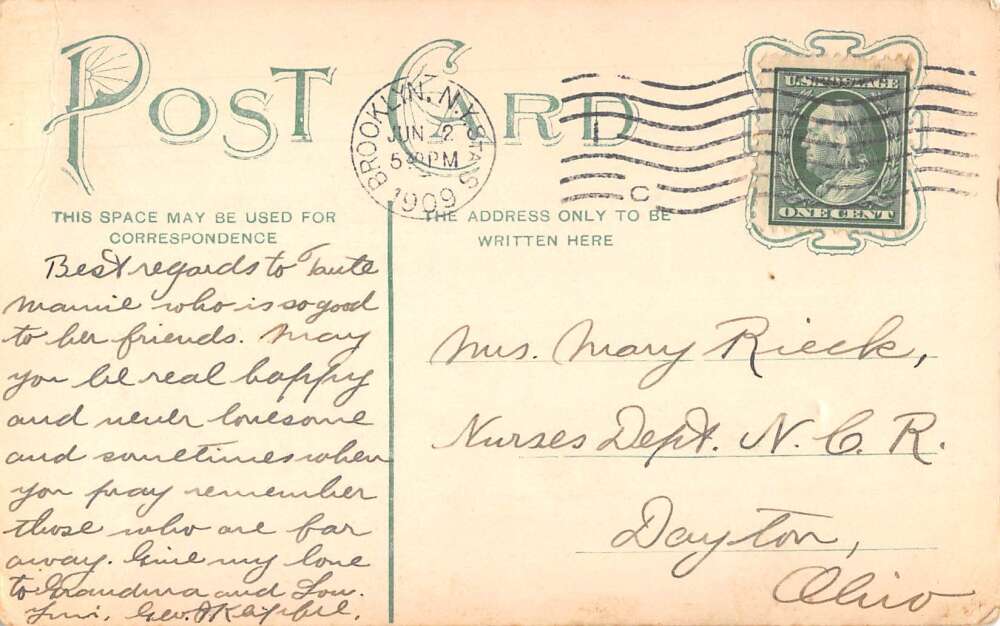 POST CARD
BROOKLYN, N.Y. STA.
JUN 2
5 PM
1909
C
U.S. POSTAGE
ONE CENT
THIS SPACE MAY BE USED FOR
CORRESPONDENCE
THE ADDRESS ONLY TO BE
WRITTEN HERE
Best regards to Tante
Mamie who is so good
to her friends. May
you be real happy
and never lonesome
and sometimes when
you pray remember
those who are far
away. Give my love
to Grandma and Lou.
Geo.
Mrs. Mary Rieck,
Nurses Dept. N. C. R.
Dayton,
Ohio